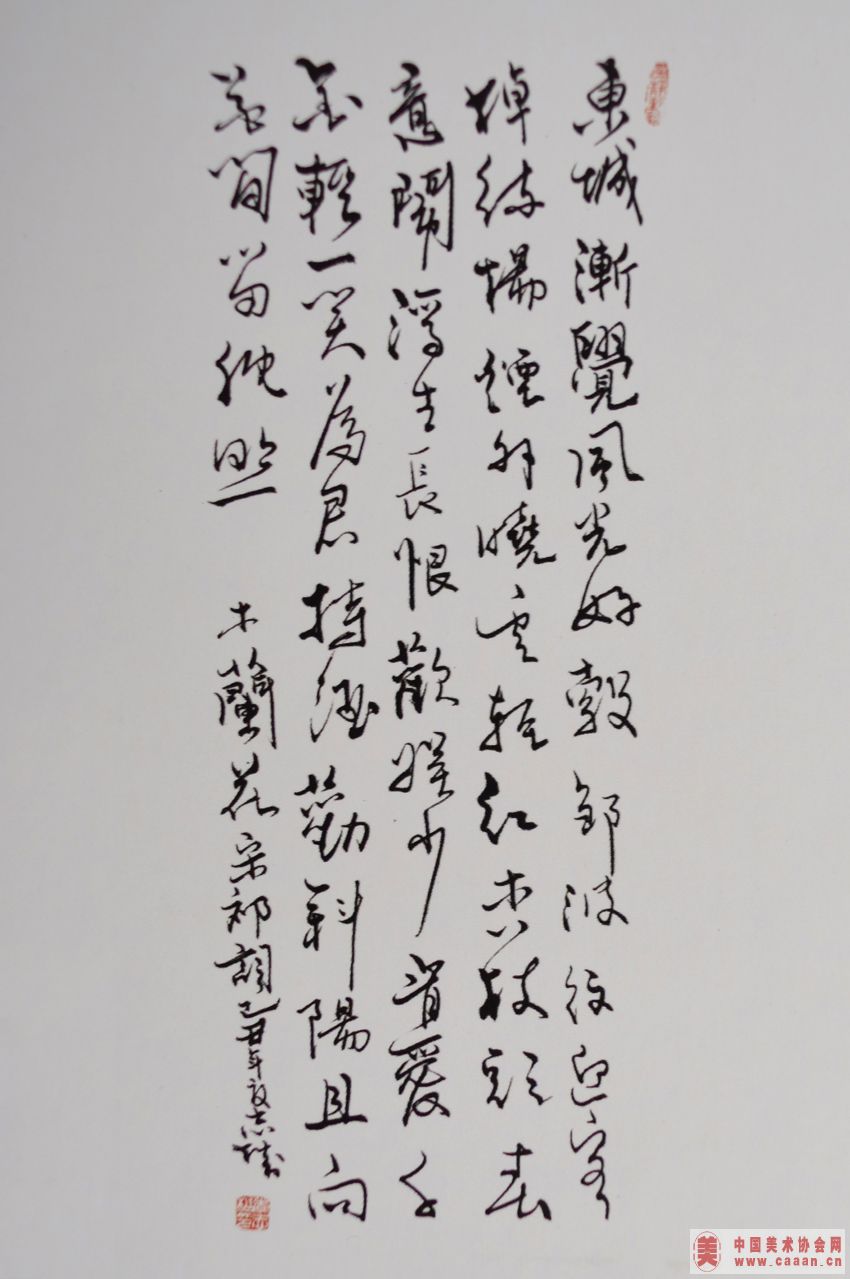 東城漸覺風光好縠皺波紋迎客
棹綠楊煙外曉雲輕紅杏枝頭春
意鬧浮生長恨歡娛少肯愛千
金輕一笑為君持酒勸斜陽且向
花間留晚照 木蘭花宋祁詞己丑年
美 中国美术协会网
www.caaan.cn